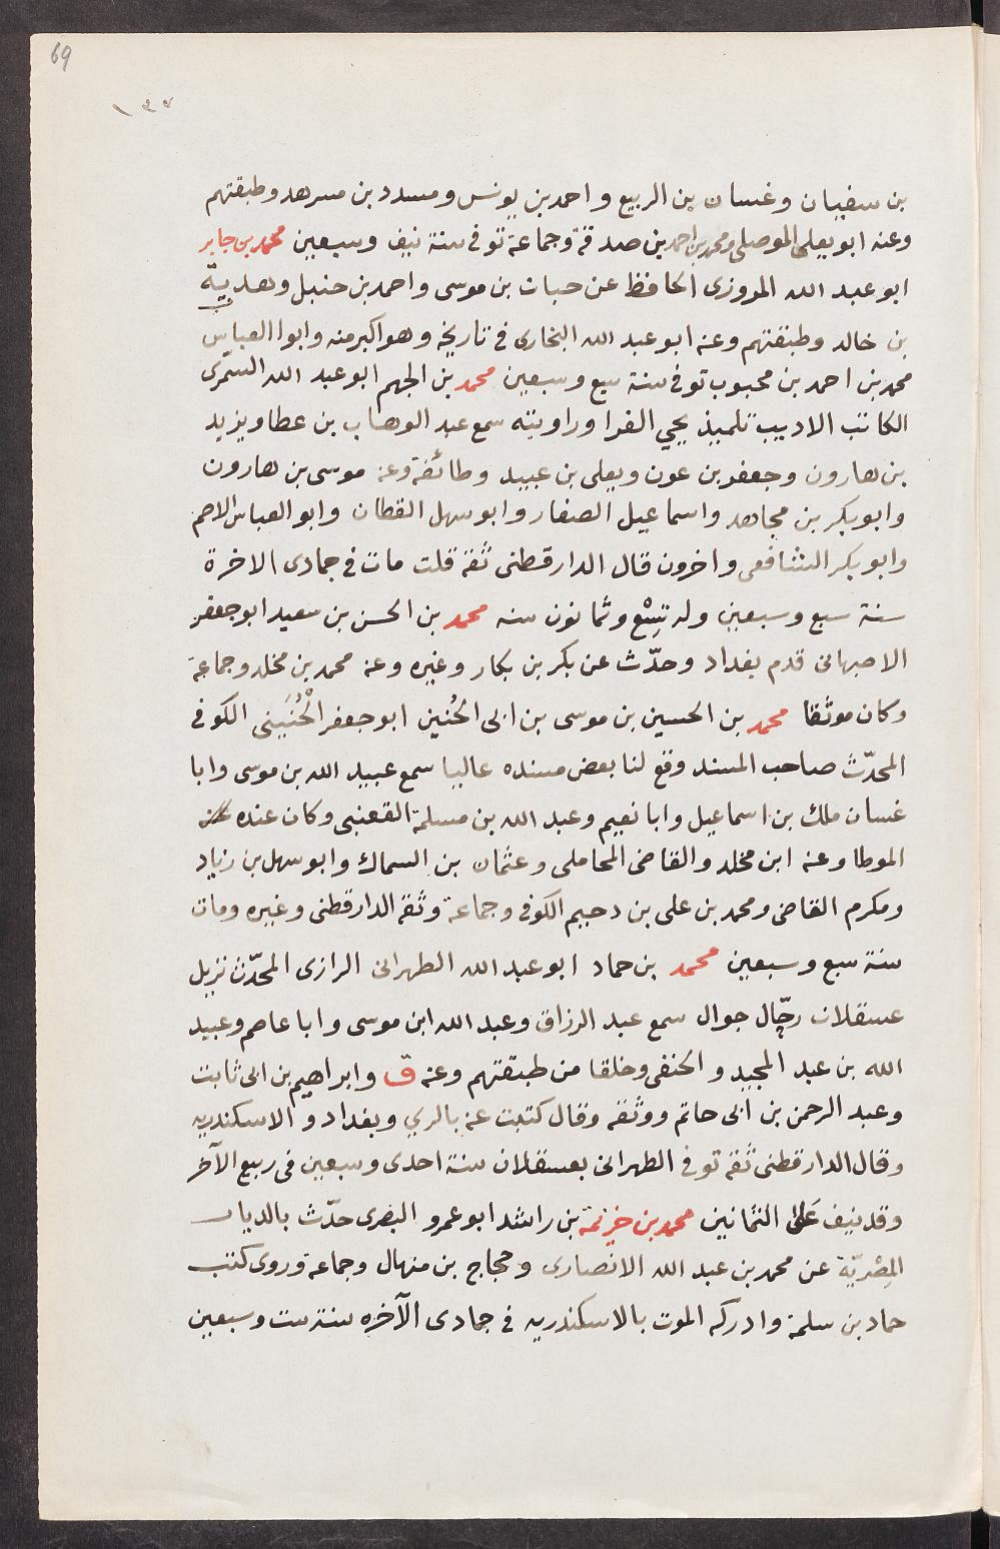 69
١٣٧
بن سفيان وغسان بن الربيع واحمد بن يونس ومسدد بن مسرهد وطبقتهم
وعنه ابو يعلى الموصلى ومحمد بن احمد بن صدقة وجماعة توفى سنة نيف وسبعين محمد بن جابر
ابو عبد الله المروزى الحافظ عن حبات بن موسى واحمد بن حنبل وهدبيّة
بن خالد وطبقتهم وعنه ابو عبد الله البخارى فى تاريخه وهو اكبر منه وابوا العباس
محمد بن احمد بن محبوب توفى سنة سبع وسبعين محمد بن الجهم ابو عبد الله السّمّرى
الكاتب الاديب تلميذ يحيي الفرا وراويته سمع عبد الوهاب بن عطا ويزيد
بن هارون وجعفر بن عون ويعلى بن عبيد وطائفة وعنه موسى بن هارون
وابو بكر بن مجاهد واسماعيل الصفار وابو سهل القطان وابو العباس الاصم
وابو بكر الشافعى واخرون قال الدارقطنى ثقة قلت مات فى جمادى الاخرة
سنة سبع وسبعين وله تِسْع وثمانون سنه محمد بن الحسن بن سعيد ابو جعفر
الاصبهانى قدم بغداد وحدّث عن بكر بن بكار وغيره وعنه محمد بن مخلد وجماعة
وكان موثقا محمد بن الحسين بن موسى بن ابى الحُنين ابو جعفر الْحُنَينى الكوفى
المحدّث صاحب المسند وقع لنا بعض مسنده عاليا سمع عبيد الله بن موسى وابا
غسان ملك بن اسماعيل وابا نعيم وعبد الله بن مسلمة القعنبى وكان عنده عنه
الموطا وعنه ابن مخلد والقاضى المحاملى وعثمان بن السماك وابو سهل بن زياد
ومكرم القاضى ومحمد بن على بن دحيم الكوفى وجماعة وثقه الدارقطنى وغيره ومات
سنة سبع وسبعين محمد بن حماد ابو عبد الله الطهرانى الرازى المحدّث نزيل
عسقلان رحّال جوال سمع عبد الرزاق وعبد الله ابن موسى وابا عاصم وعبيد
الله بن عبد المجيد والحنفى وخلقا من طبقتهم وعنه ق وابراهيم بن ابى ثابت
وعبد الرحمن بن ابى حاتم ووثقه وقال كتبت عنه بالري وبغداد والاسكندريه
وقال الدارقطنى ثقة توفى الطهرانى بعسقلان سنة احدى وسبعين فى ربيع الآخر
وقد نيف عَلى الثمانين محمد بن خزيمة بن راشد ابو عمرو البصرى حدّث بالديار
المِصْريّة عن محمد بن عبد الله الانصارى وحجاج بن منهال وجماعة وروى كتب
حماد بن سلمة وادركه الموت بالاسكندريه فى جمادى الآخره سنة ست وسبعين